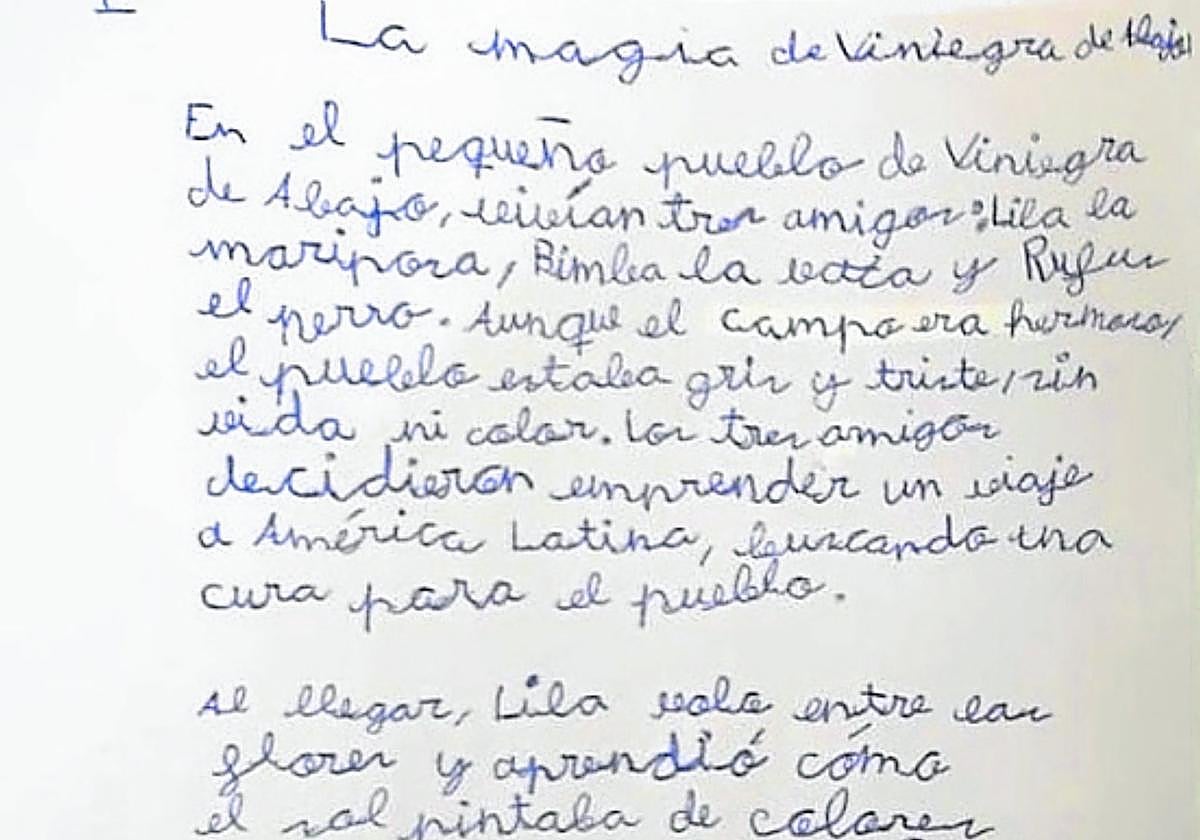 La magia de Viniegra de Abajo
En el pequeño pueblo de Viniegra
de Abajo, vivían tres amigos: Lila la
mariposa, Bimba la vaca y Rufus
el perro. Aunque el campo era hermoso,
el pueblo estaba gris y triste, sin
vida ni color. Los tres amigos
decidieron emprender un viaje
a América Latina, buscando una
cura para el pueblo.
Al llegar, Lila vola entre las
flores y aprendió cómo
el sol pintaba de colores